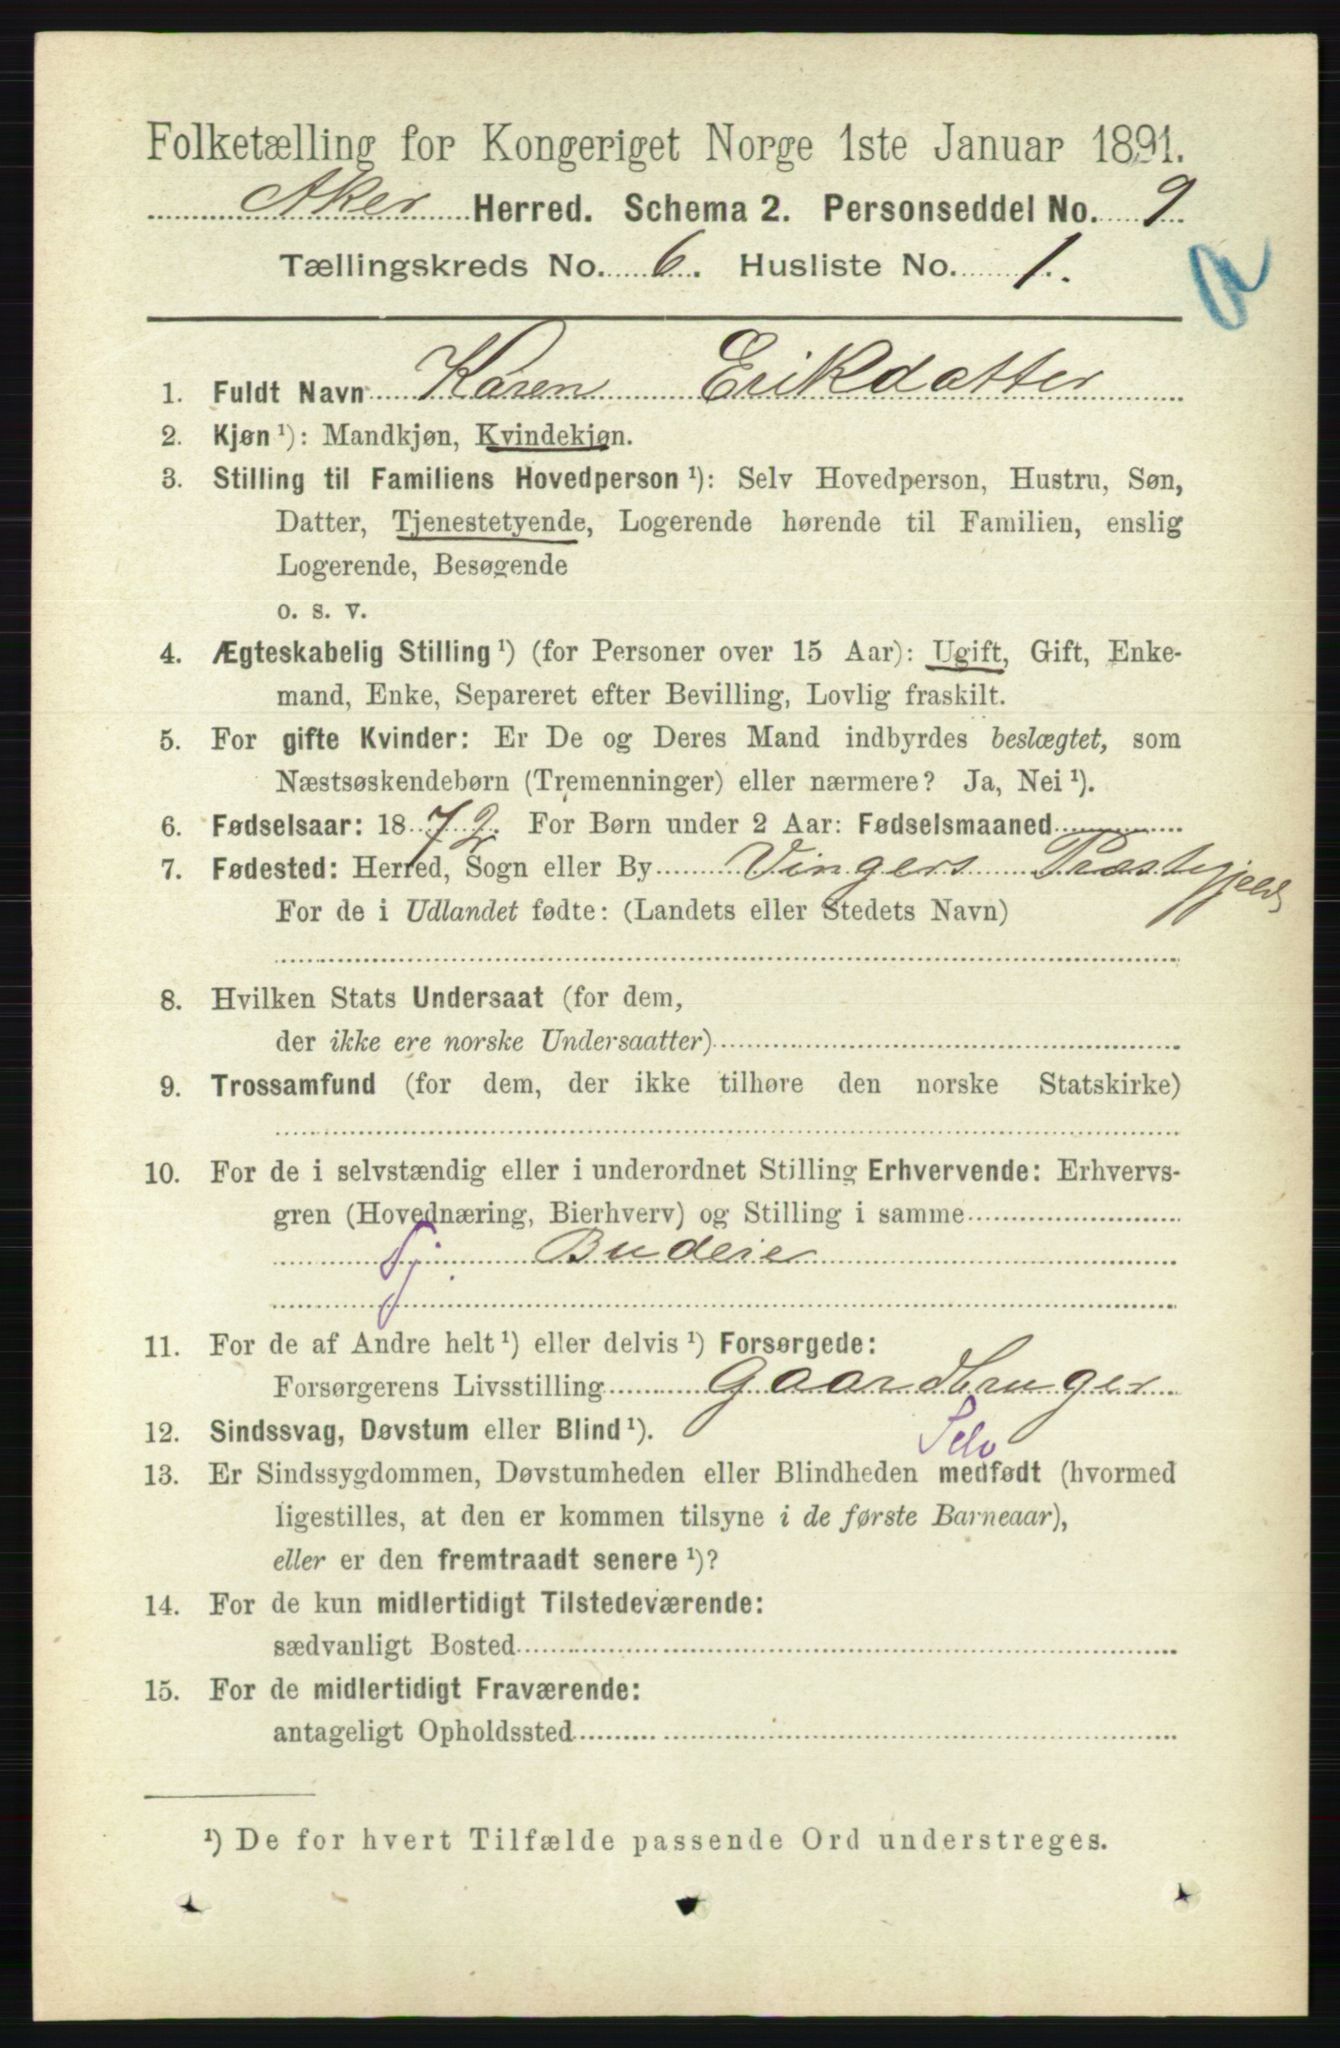 Folketælling for Kongeriget Norge 1ste Januar 1891.
Aker Herred. Schema 2. Personseddel No. 9
Tællingskreds No. 6. Husliste No. 1.
a
1. Fuldt Navn Karen Erikdatter
2. Kjøn ¹): Mandkjøn, Kvindekjøn.
3. Stilling til Familiens Hovedperson ¹): Selv Hovedperson, Hustru, Søn,
Datter, Tjenestetyende, Logerende hørende til Familien, enslig
Logerende, Besøgende
o. s. v.
4. Ægteskabelig Stilling ¹) (for Personer over 15 Aar): Ugift, Gift, Enke-
mand, Enke, Separeret efter Bevilling, Lovlig fraskilt.
5. For gifte Kvinder: Er De og Deres Mand indbyrdes beslægtet, som
Næstsøskendebørn (Tremenninger) eller nærmere? Ja, Nei ¹).
6. Fødselsaar: 1872. For Børn under 2 Aar: Fødselsmaaned
7. Fødested: Herred, Sogn eller By Vingers Præstegjeld
For de i Udlandet fødte: (Landets eller Stedets Navn)
8. Hvilken Stats Undersaat (for dem,
der ikke ere norske Undersaatter)
9. Trossamfund (for dem, der ikke tilhøre den norske Statskirke)
10. For de i selvstændig eller i underordnet Stilling Erhvervende: Erhvervs-
gren (Hovednæring, Bierhverv) og Stilling i samme
Tj Budeie
11. For de af Andre helt ¹) eller delvis ¹) Forsørgede:
Forsørgerens Livsstilling Gaardbruger
12. Sindssvag, Døvstum eller Blind ¹).
Selv
13. Er Sindssygdommen, Døvstumheden eller Blindheden medfødt (hvormed
ligestilles, at den er kommen tilsyne i de første Barneaar),
eller er den fremtraadt senere ¹)?
14. For de kun midlertidigt Tilstedeværende:
sædvanligt Bosted
15. For de midlertidigt Fraværende:
antageligt Opholdssted
¹) De for hvert Tilfælde passende Ord understreges.